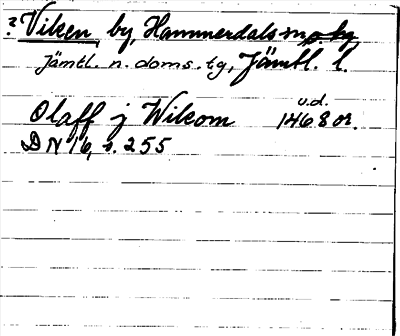 ? Vilsen by, Hammerdals sn
Jämtl. n. doms. tg, Jämtl. l.
u.d.
Olaff j Wilsom 1468 or.
DN 16, s. 255